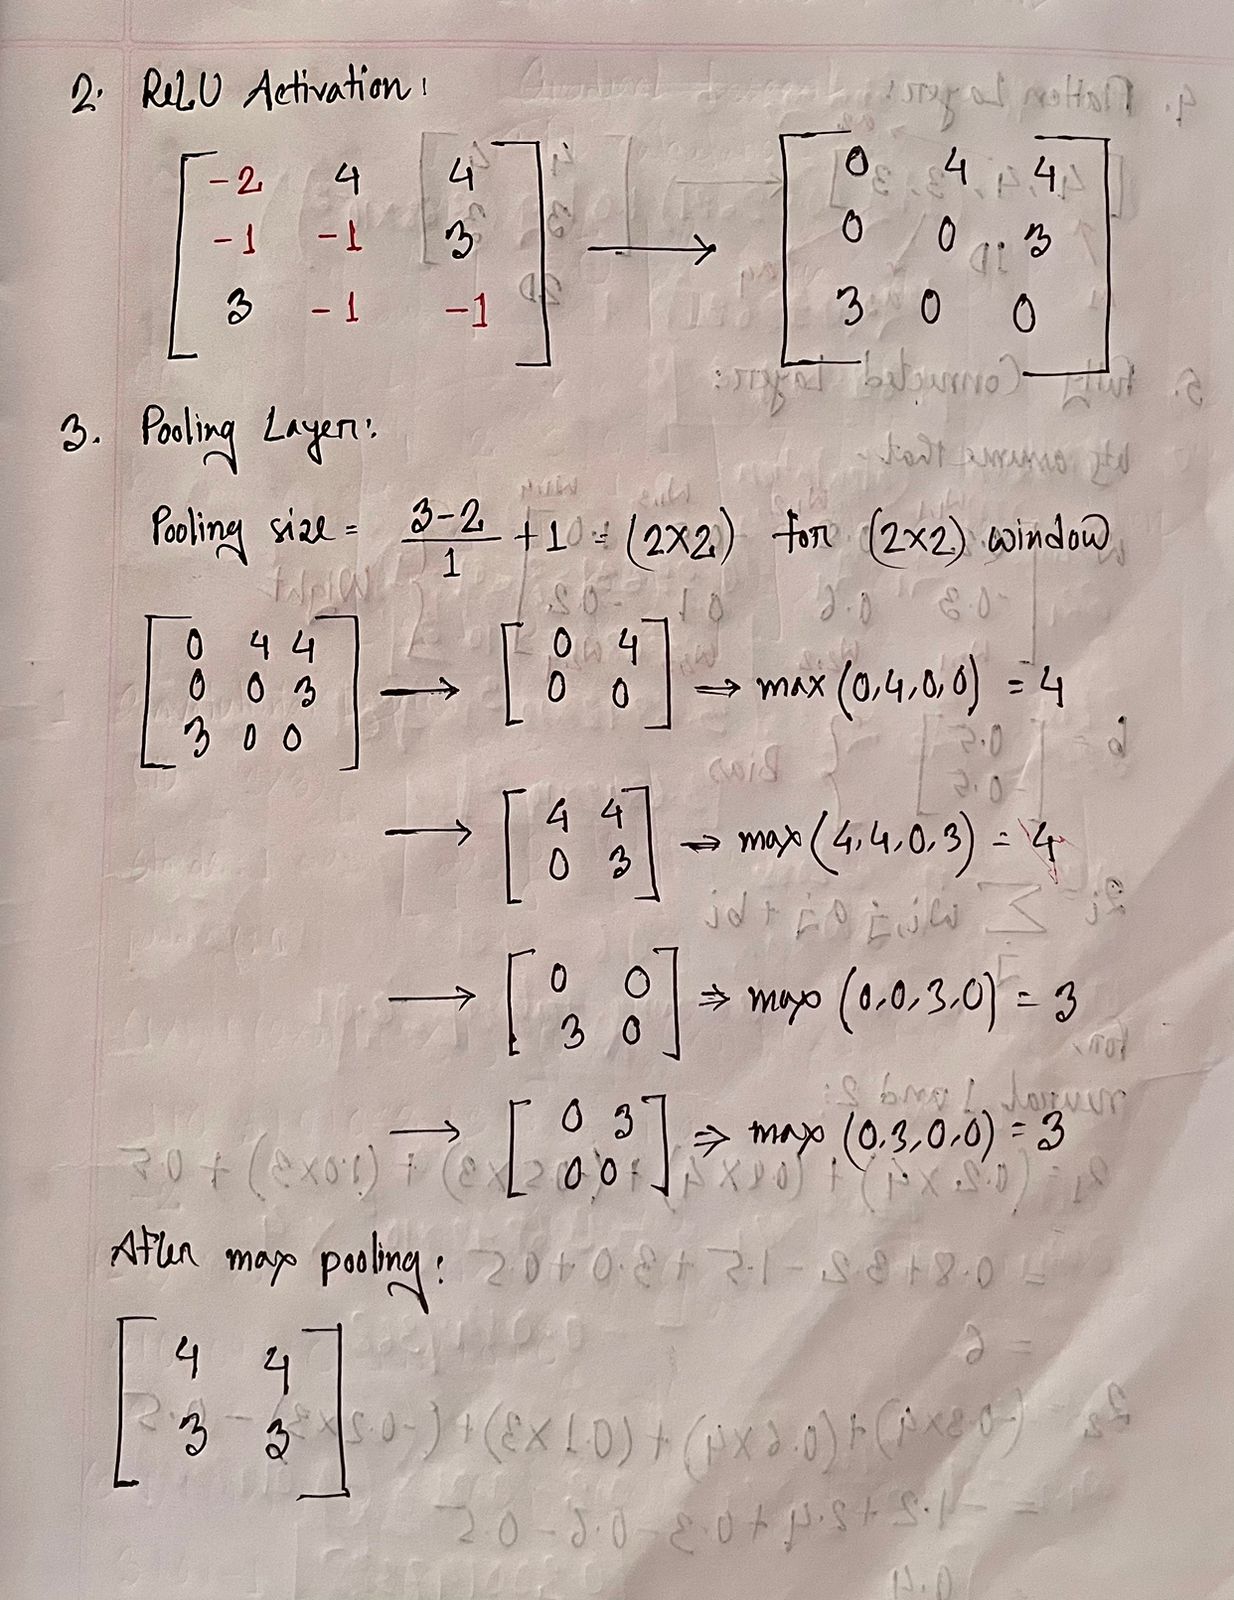 2. ReLU Activation:
-2 4 4 0 4 4
-1 -1 3 → 0 0 3
3 -1 -1 3 0 0
3. Pooling Layer:
Pooling size = (3-2)/1 + 1 = (2×2) for (2×2) window
0 4 4
0 0 3
3 0 0
→ [0 4
0 0] ⇒ max(0,4,0,0) = 4
→ [4 4
0 3] ⇒ max(4,4,0,3) = 4
→ [0 0
3 0] ⇒ max(0,0,3,0) = 3
→ [0 3
0 0] ⇒ max(0,3,0,0) = 3
After max pooling:
4 4
3 3